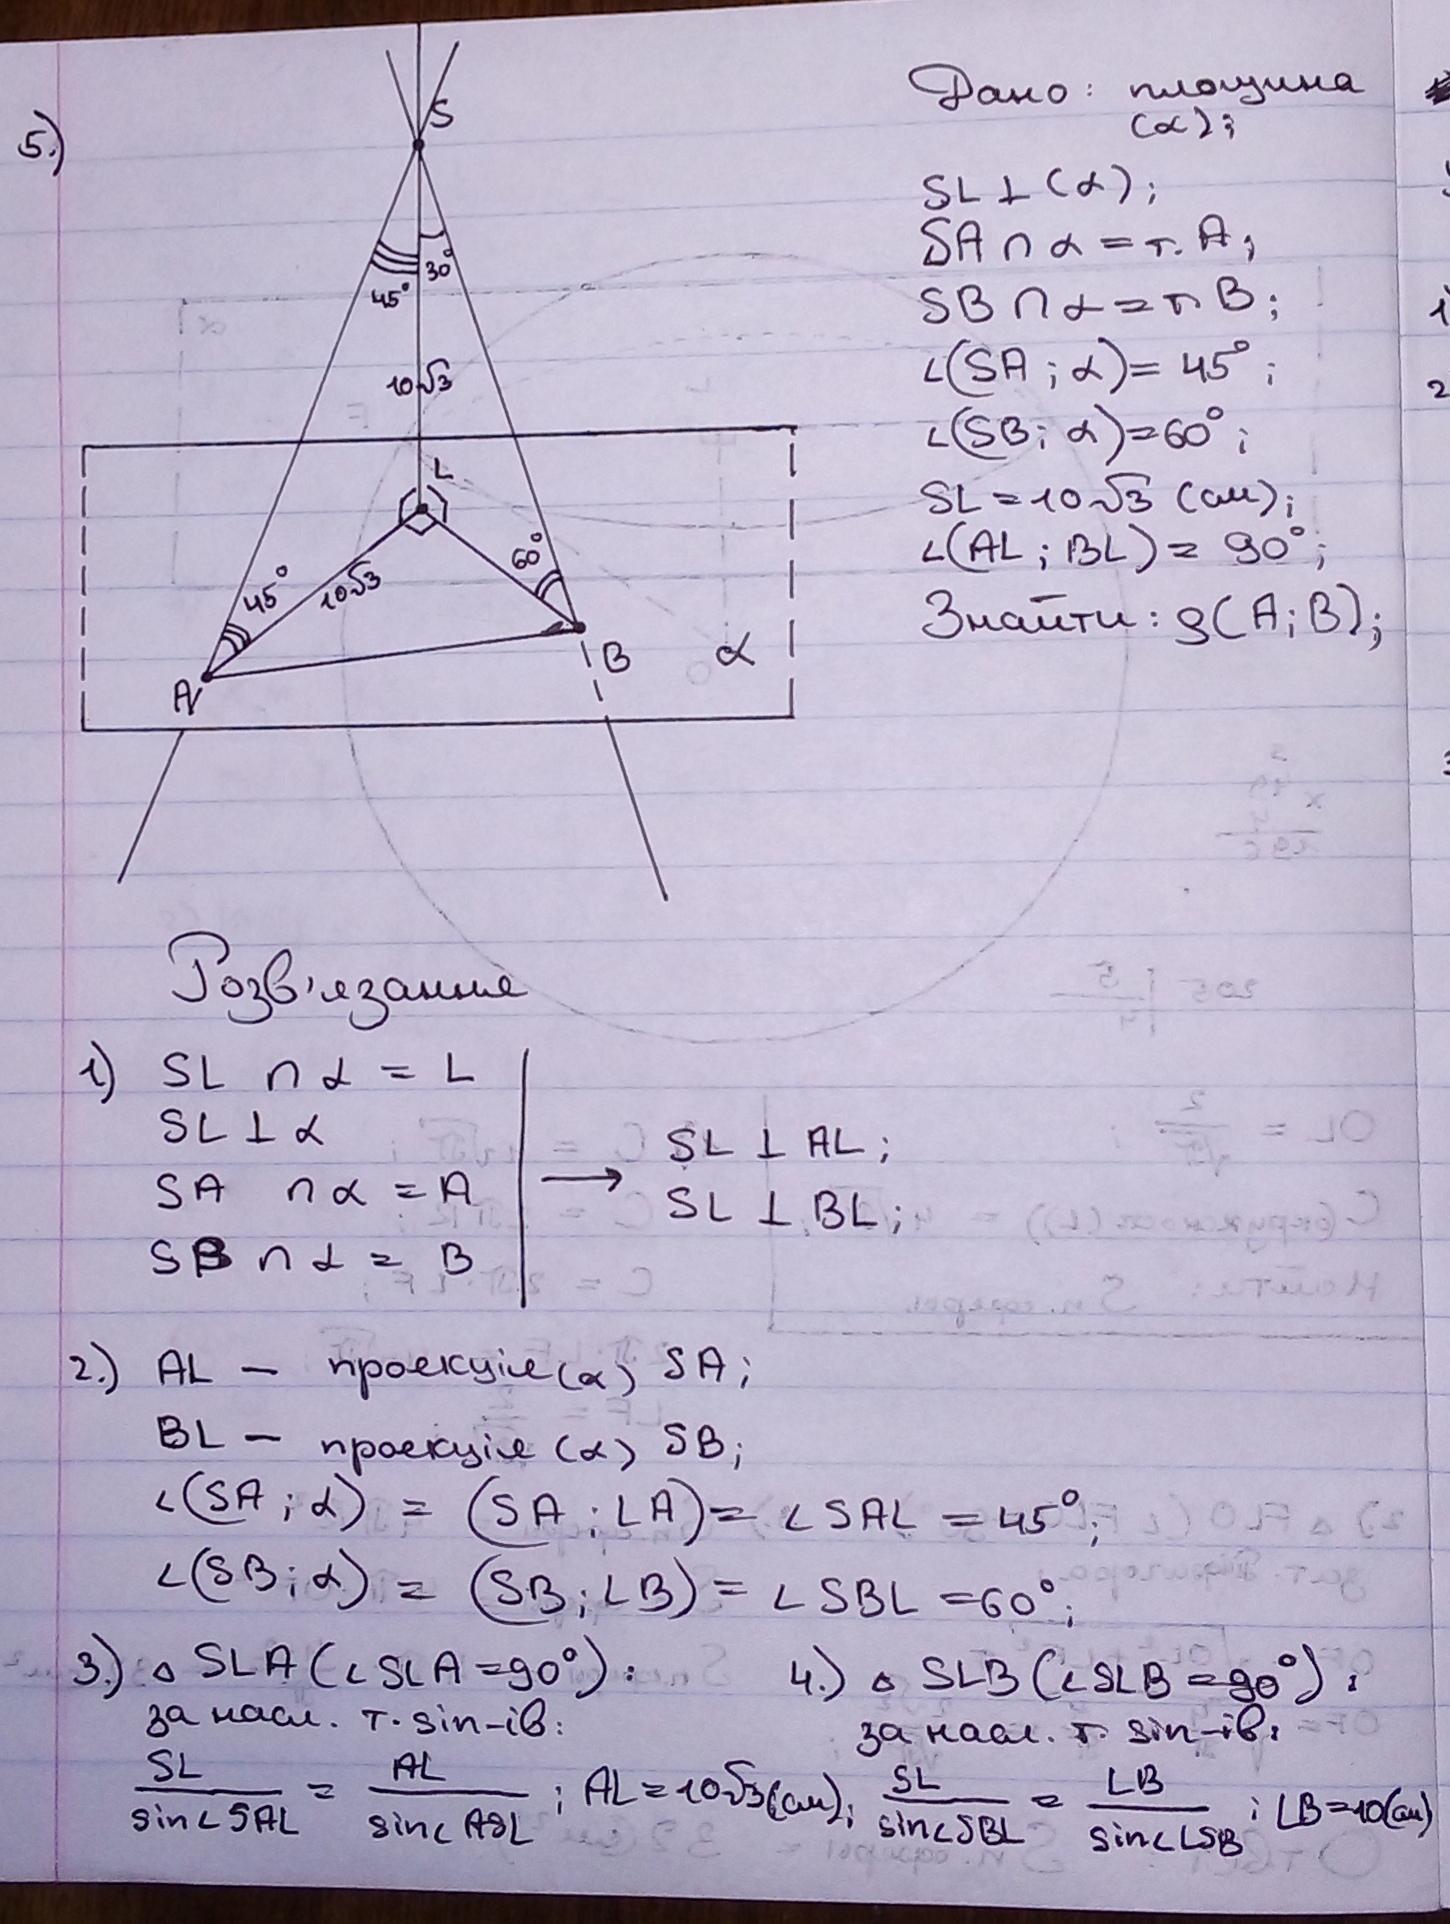 5.)
S
45°
30°
10√3
L
45°
10√3
60°
A
B
α
Дано: площина
(α);
SL ⊥ (α);
SA ∩ α = т. A;
SB ∩ α = т. B;
∠(SA; α) = 45°;
∠(SB; α) = 60°;
SL = 10√3 (см);
∠(AL; BL) = 90°;
Знайти: ρ(A; B);
Розв'язання
1) SL ∩ α = L
SL ⊥ α
SA ∩ α = A
SB ∩ α = B
→ SL ⊥ AL;
SL ⊥ BL;
2.) AL – проекція (α) SA;
BL – проекція (α) SB;
∠(SA; α) = (SA; LA) = ∠SAL = 45°;
∠(SB; α) = (SB; LB) = ∠SBL = 60°;
3.) △ SLA (∠SLA = 90°):
за насл. т. sin-ів:
SL / sin∠SAL = AL / sin∠ASL ; AL = 10√3 (см);
4.) △ SLB (∠SLB = 90°):
за насл. т. sin-ів:
SL / sin∠SBL = LB / sin∠LSB ; LB = 10 (см)